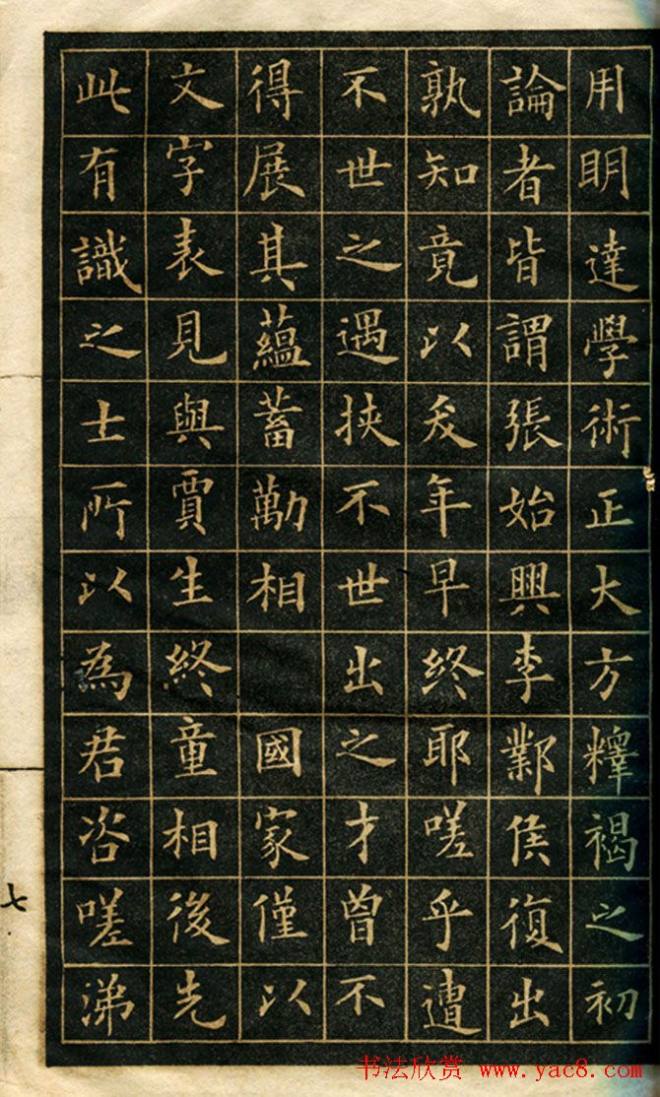 用明達學術正大方釋褐之初
論者皆謂張始興李鄴侯復出
孰知竟以矣年早終耶嗟乎遭
不世之遇挾不世出之才曾不
得展其蘊蓄勷相國家僅以
文字表見與賈生終童相後先
此有識之士所以為君咨嗟涕
七
书法欣赏 www.yac8.com